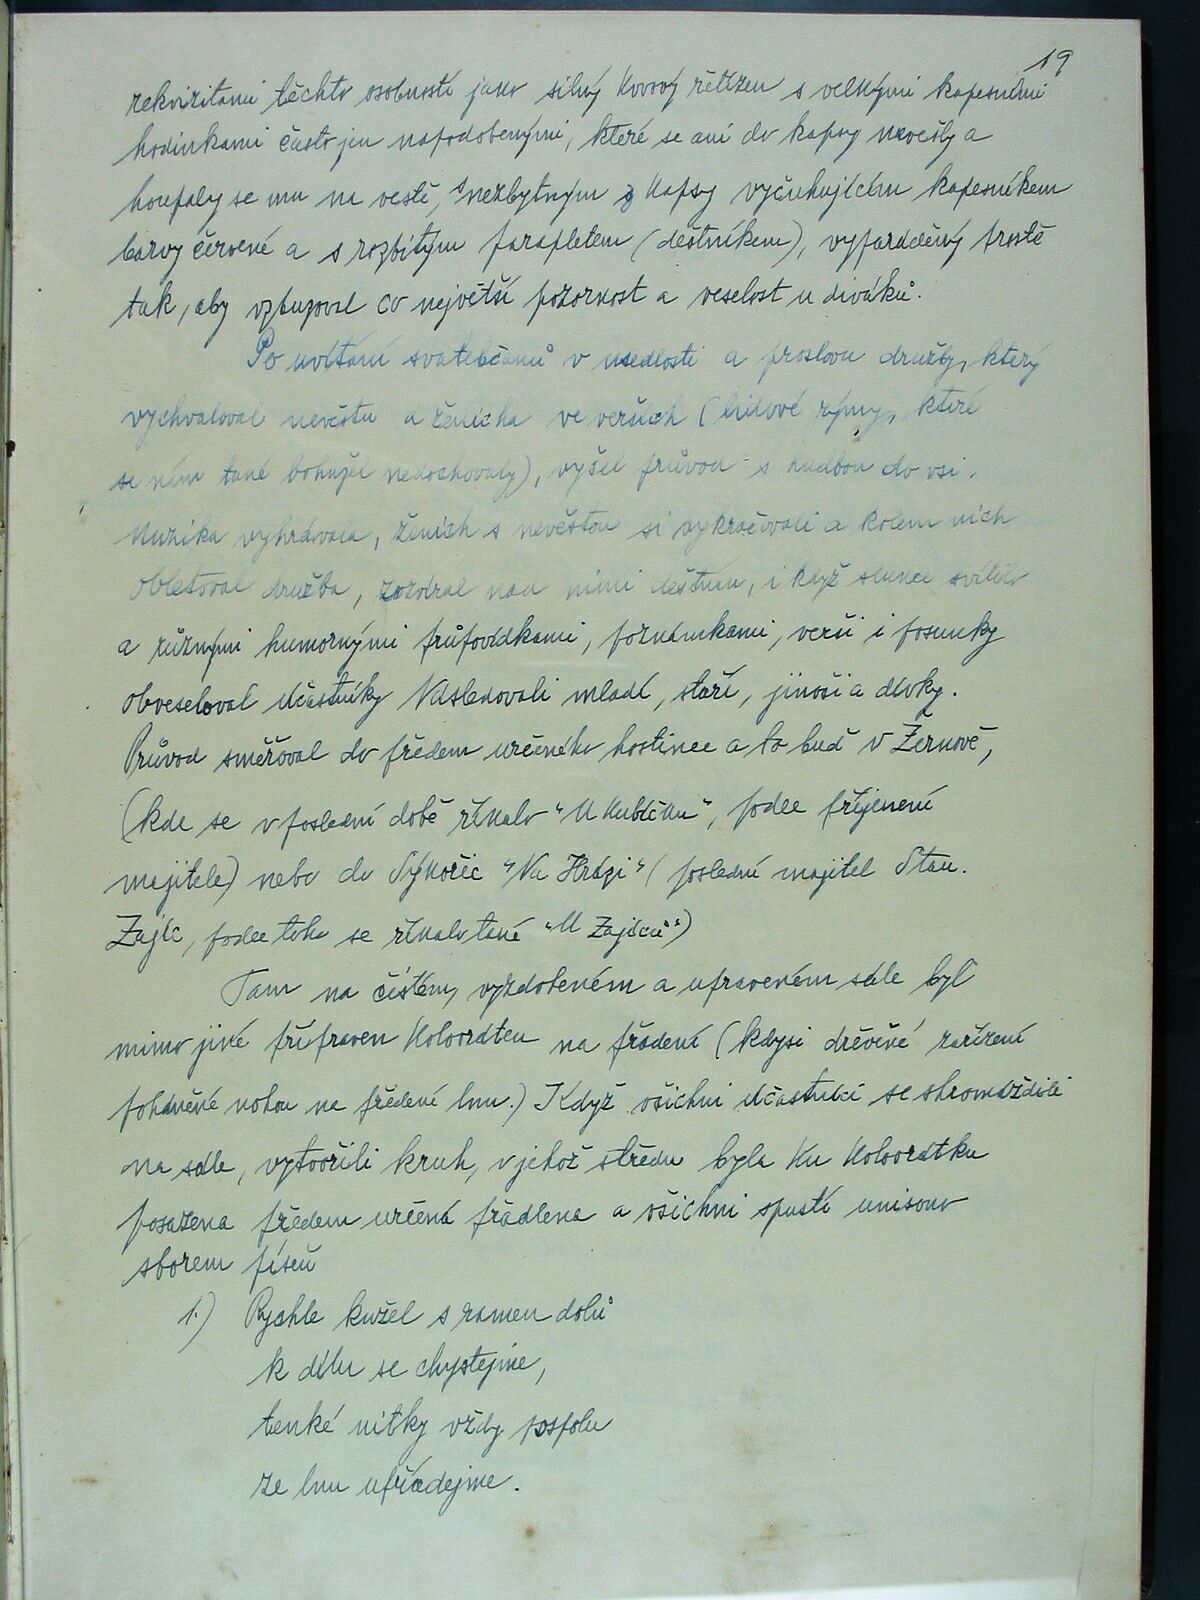 19
rekvizitami těchto osobností jako silný kovový řetízek s velkými kapesními
hodinkami často jen napodobenými, které se ani do kapsy nevešly a
houpaly se mu na vestě, s nezbytným z kapsy vyčuhujícím kapesníkem
barvy červené a s rozbitým parapletem (deštníkem), vyparáděný prostě
tak, aby vzbuzoval co největší pozornost a veselost u diváků.
Po uvítání svatebčanů v usedlosti a proslovu družby, který
vychvaloval nevěstu a ženicha ve verších (lidové rýmy, které
se nám také bohužel nedochovaly), vyšel průvod s hudbou do vsi.
Muzika vyhrávala, ženich s nevěstou si vykračovali a kolem nich
obletoval družba, rozvíral nad nimi deštník, i když slunce svítilo
a různými humornými průpovídkami, poznámkami, verši i posunky
obveseloval účastníky Následovali mladí, staří, jinoši a dívky.
Průvod směřoval do předem určeného hostince a to buď v Žernově,
(kde se v poslední době říkalo "U Kubíčků", podle příjmení
majitele) nebo do Sýkořic "Na Hrázi" (poslední majitel Stan.
Zajíc, podle toho se říkalo také "U Zajíců")
Tam na čistém, vyzdobeném a upraveném sále byl
mimo jiné připraven kolovrátek na předení (kdysi dřevěné zařízení
poháněné nohou na předení lnu.) Když všichni účastníci se shromáždili
na sále, vytvořili kruh, v jehož středu byla ku kolovrátku
posazena předem určená přadlena a všichni spustí unisono
sborem píseň
1.) Rychle kužel s ramen dolů
k dílu se chystejme,
tenké nitky vždy pospolu
ze lnu upřádejme.